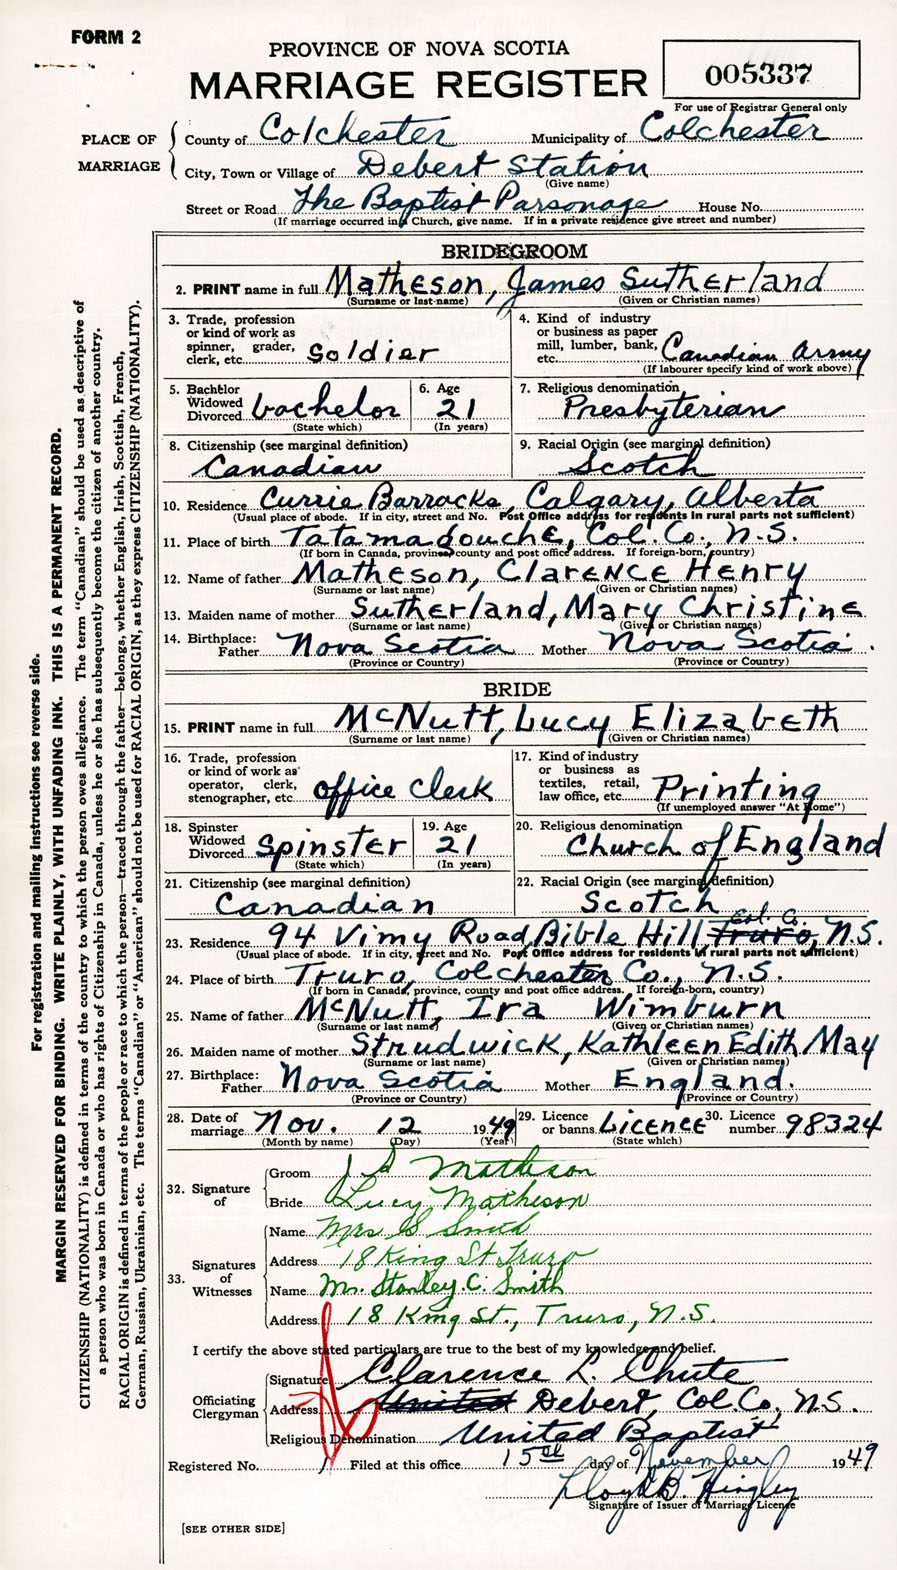 FORM 2
PROVINCE OF NOVA SCOTIA
MARRIAGE REGISTER
005337
For use of Registrar General only
PLACE OF MARRIAGE
County of Colchester Municipality of Colchester
City, Town or Village of Debert Station
(Give name)
Street or Road The Baptist Parsonage House No.
(If marriage occurred in a Church, give name. If in a private residence give street and number)
BRIDEGROOM
2. PRINT name in full Matheson, James Sutherland
(Surname or last name) (Given or Christian names)
3. Trade, profession or kind of work as spinner, grader, clerk, etc. Soldier
4. Kind of industry or business as paper mill, lumber, bank, etc. Canadian Army
(If labourer specify kind of work above)
5. Bachelor Widowed Divorced bachelor
(State which)
6. Age 21
(In years)
7. Religious denomination Presbyterian
8. Citizenship (see marginal definition) Canadian
9. Racial Origin (see marginal definition) Scotch
10. Residence Currie Barracks, Calgary, Alberta
(Usual place of abode. If in city, street and No. Post Office address for residents in rural parts not sufficient)
11. Place of birth Tatamagouche, Col. Co., N.S.
(If born in Canada, province, county and post office address. If foreign-born, country)
12. Name of father Matheson, Clarence Henry
(Surname or last name) (Given or Christian names)
13. Maiden name of mother Sutherland, Mary Christine
(Surname or last name) (Given or Christian names)
14. Birthplace: Father Nova Scotia Mother Nova Scotia.
(Province or Country) (Province or Country)
BRIDE
15. PRINT name in full McNutt, Lucy Elizabeth
(Surname or last name) (Given or Christian names)
16. Trade, profession or kind of work as operator, clerk, stenographer, etc. office clerk
17. Kind of industry or business as textiles, retail, law office, etc. Printing
(If unemployed answer "At Home")
18. Spinster Widowed Divorced Spinster
(State which)
19. Age 21
(In years)
20. Religious denomination Church of England
21. Citizenship (see marginal definition) Canadian
22. Racial Origin (see marginal definition) Scotch
Col. Co.
23. Residence 94 Vimy Road, Bible Hill, Truro, N.S.
(Usual place of abode. If in city, street and No. Post Office address for residents in rural parts not sufficient)
24. Place of birth Truro, Colchester Co., N.S.
(If born in Canada, province, county and post office address. If foreign-born, country)
25. Name of father McNutt, Ira Wimburn
(Surname or last name) (Given or Christian names)
26. Maiden name of mother Strudwick, Kathleen Edith May
(Surname or last name) (Given or Christian names)
27. Birthplace: Father Nova Scotia Mother England.
(Province or Country) (Province or Country)
28. Date of marriage Nov. 12 1949
(Month by name) (Day) (Year)
29. Licence or banns Licence
(State which)
30. Licence number 98324
32. Signature of
Groom J S Matheson
Bride Lucy Matheson
33. Signatures of Witnesses
Name Mrs S Smith
Address 18 King St Truro
Name Mr. Stanley C. Smith
Address 18 King St., Truro, N.S.
I certify the above stated particulars are true to the best of my knowledge and belief.
Officiating Clergyman
Signature Clarence L. Chute
Address United Debert, Col. Co., N.S.
Religious Denomination United Baptist
Registered No. 1 Filed at this office 15th day of November 1949
Lloyd B. Hingley
Signature of Issuer of Marriage Licence
[SEE OTHER SIDE]
For registration and mailing instructions see reverse side.
MARGIN RESERVED FOR BINDING. WRITE PLAINLY, WITH UNFADING INK. THIS IS A PERMANENT RECORD.
CITIZENSHIP (NATIONALITY) is defined in terms of the country to which the person owes allegiance. The term "Canadian" should be used as descriptive of
a person who was born in Canada or who has rights of Citizenship in Canada, unless he or she has subsequently become the citizen of another country.
RACIAL ORIGIN is defined in terms of the people or race to which the person—traced through the father—belongs, whether English, Irish, Scottish, French,
German, Russian, Ukrainian, etc. The terms "Canadian" or "American" should not be used for RACIAL ORIGIN, as they express CITIZENSHIP (NATIONALITY).